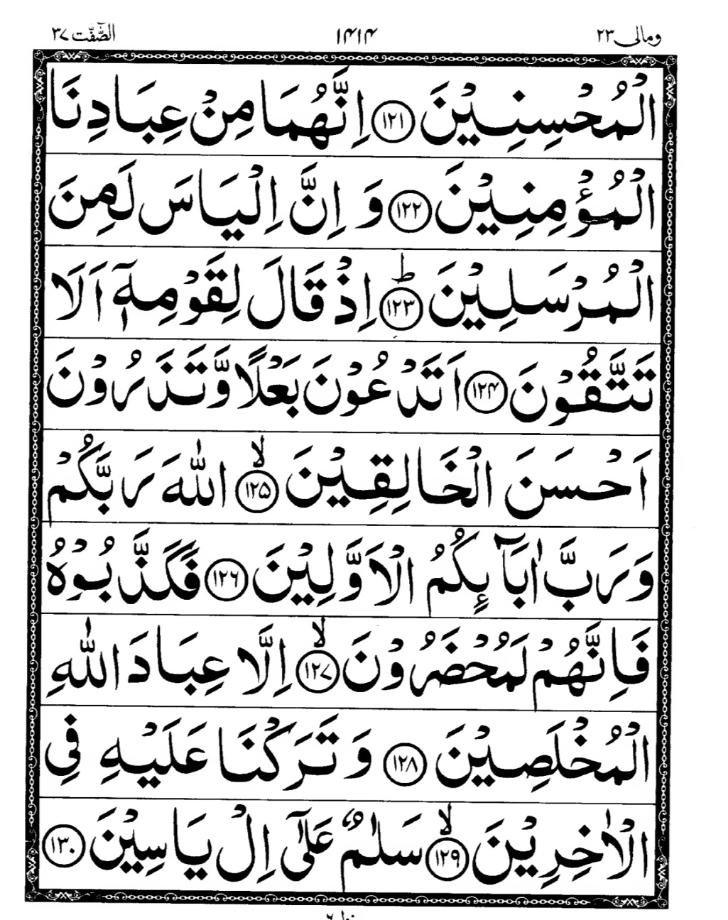 ومالی ۲۳ ۱۴۱۴ الصّٰٓفّٰت ۳۷
الْمُحْسِنِيْنَ ۱۲۱ اِنَّهُمَا مِنْ عِبَادِنَا
الْمُؤْمِنِيْنَ ۱۲۲ وَ اِنَّ اِلْيَاسَ لَمِنَ
الْمُرْسَلِيْنَ ؕ ۱۲۳ اِذْ قَالَ لِقَوْمِهٖٓ اَلَا
تَتَّقُوْنَ ۱۲۴ اَتَدْعُوْنَ بَعْلًا وَّتَذَرُوْنَ
اَحْسَنَ الْخَالِقِيْنَ ۙ ۱۲۵ اللّٰهَ رَبَّكُمْ
وَرَبَّ اٰبَآئِكُمُ الْاَوَّلِيْنَ ۱۲۶ فَكَذَّبُوْهُ
فَاِنَّهُمْ لَمُحْضَرُوْنَ ۙ ۱۲۷ اِلَّا عِبَادَ اللّٰهِ
الْمُخْلَصِيْنَ ۱۲۸ وَ تَرَكْنَا عَلَيْهِ فِى
الْاٰخِرِيْنَ ۙ ۱۲۹ سَلٰمٌ عَلٰٓى اِلْ يَاسِيْنَ ۱۳۰